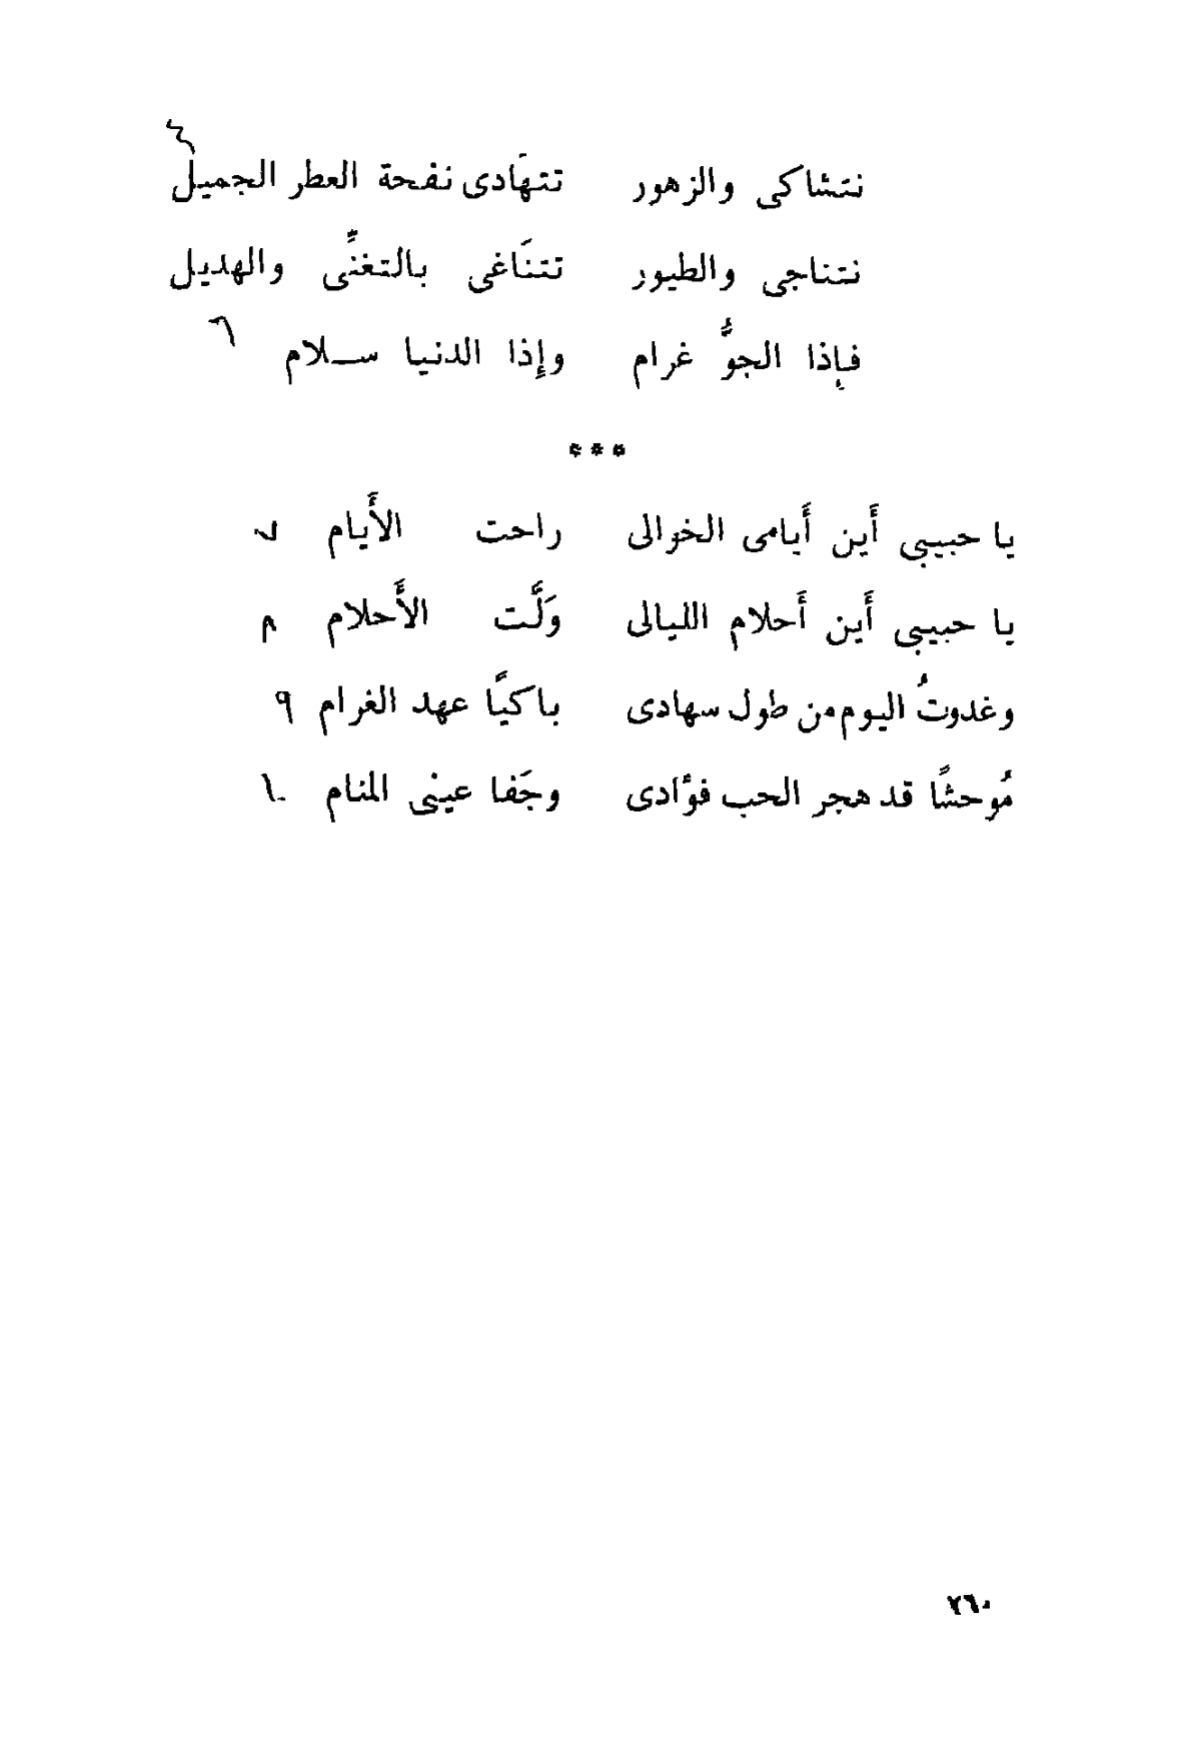 نتشاكى والزهور تتهَادى نفحة العطر الجميل ٤
نتناجى والطيور تتنَاغى بالتغنِّى والهديل
فإذا الجوُّ غرام وإذا الدنيا ســلام ٦
***
يا حبيبى أَين أَيامى الخوالى راحت الأَيام ٧
يا حبيبى أَين أَحلام الليالى وَلَّت الأَحلام ٨
وغدوتُ اليوم من طول سهادى باكيًا عهد الغرام ٩
مُوحشًا قد هجر الحب فؤادى وجَفا عينى المنام ١٠
٢٦٠